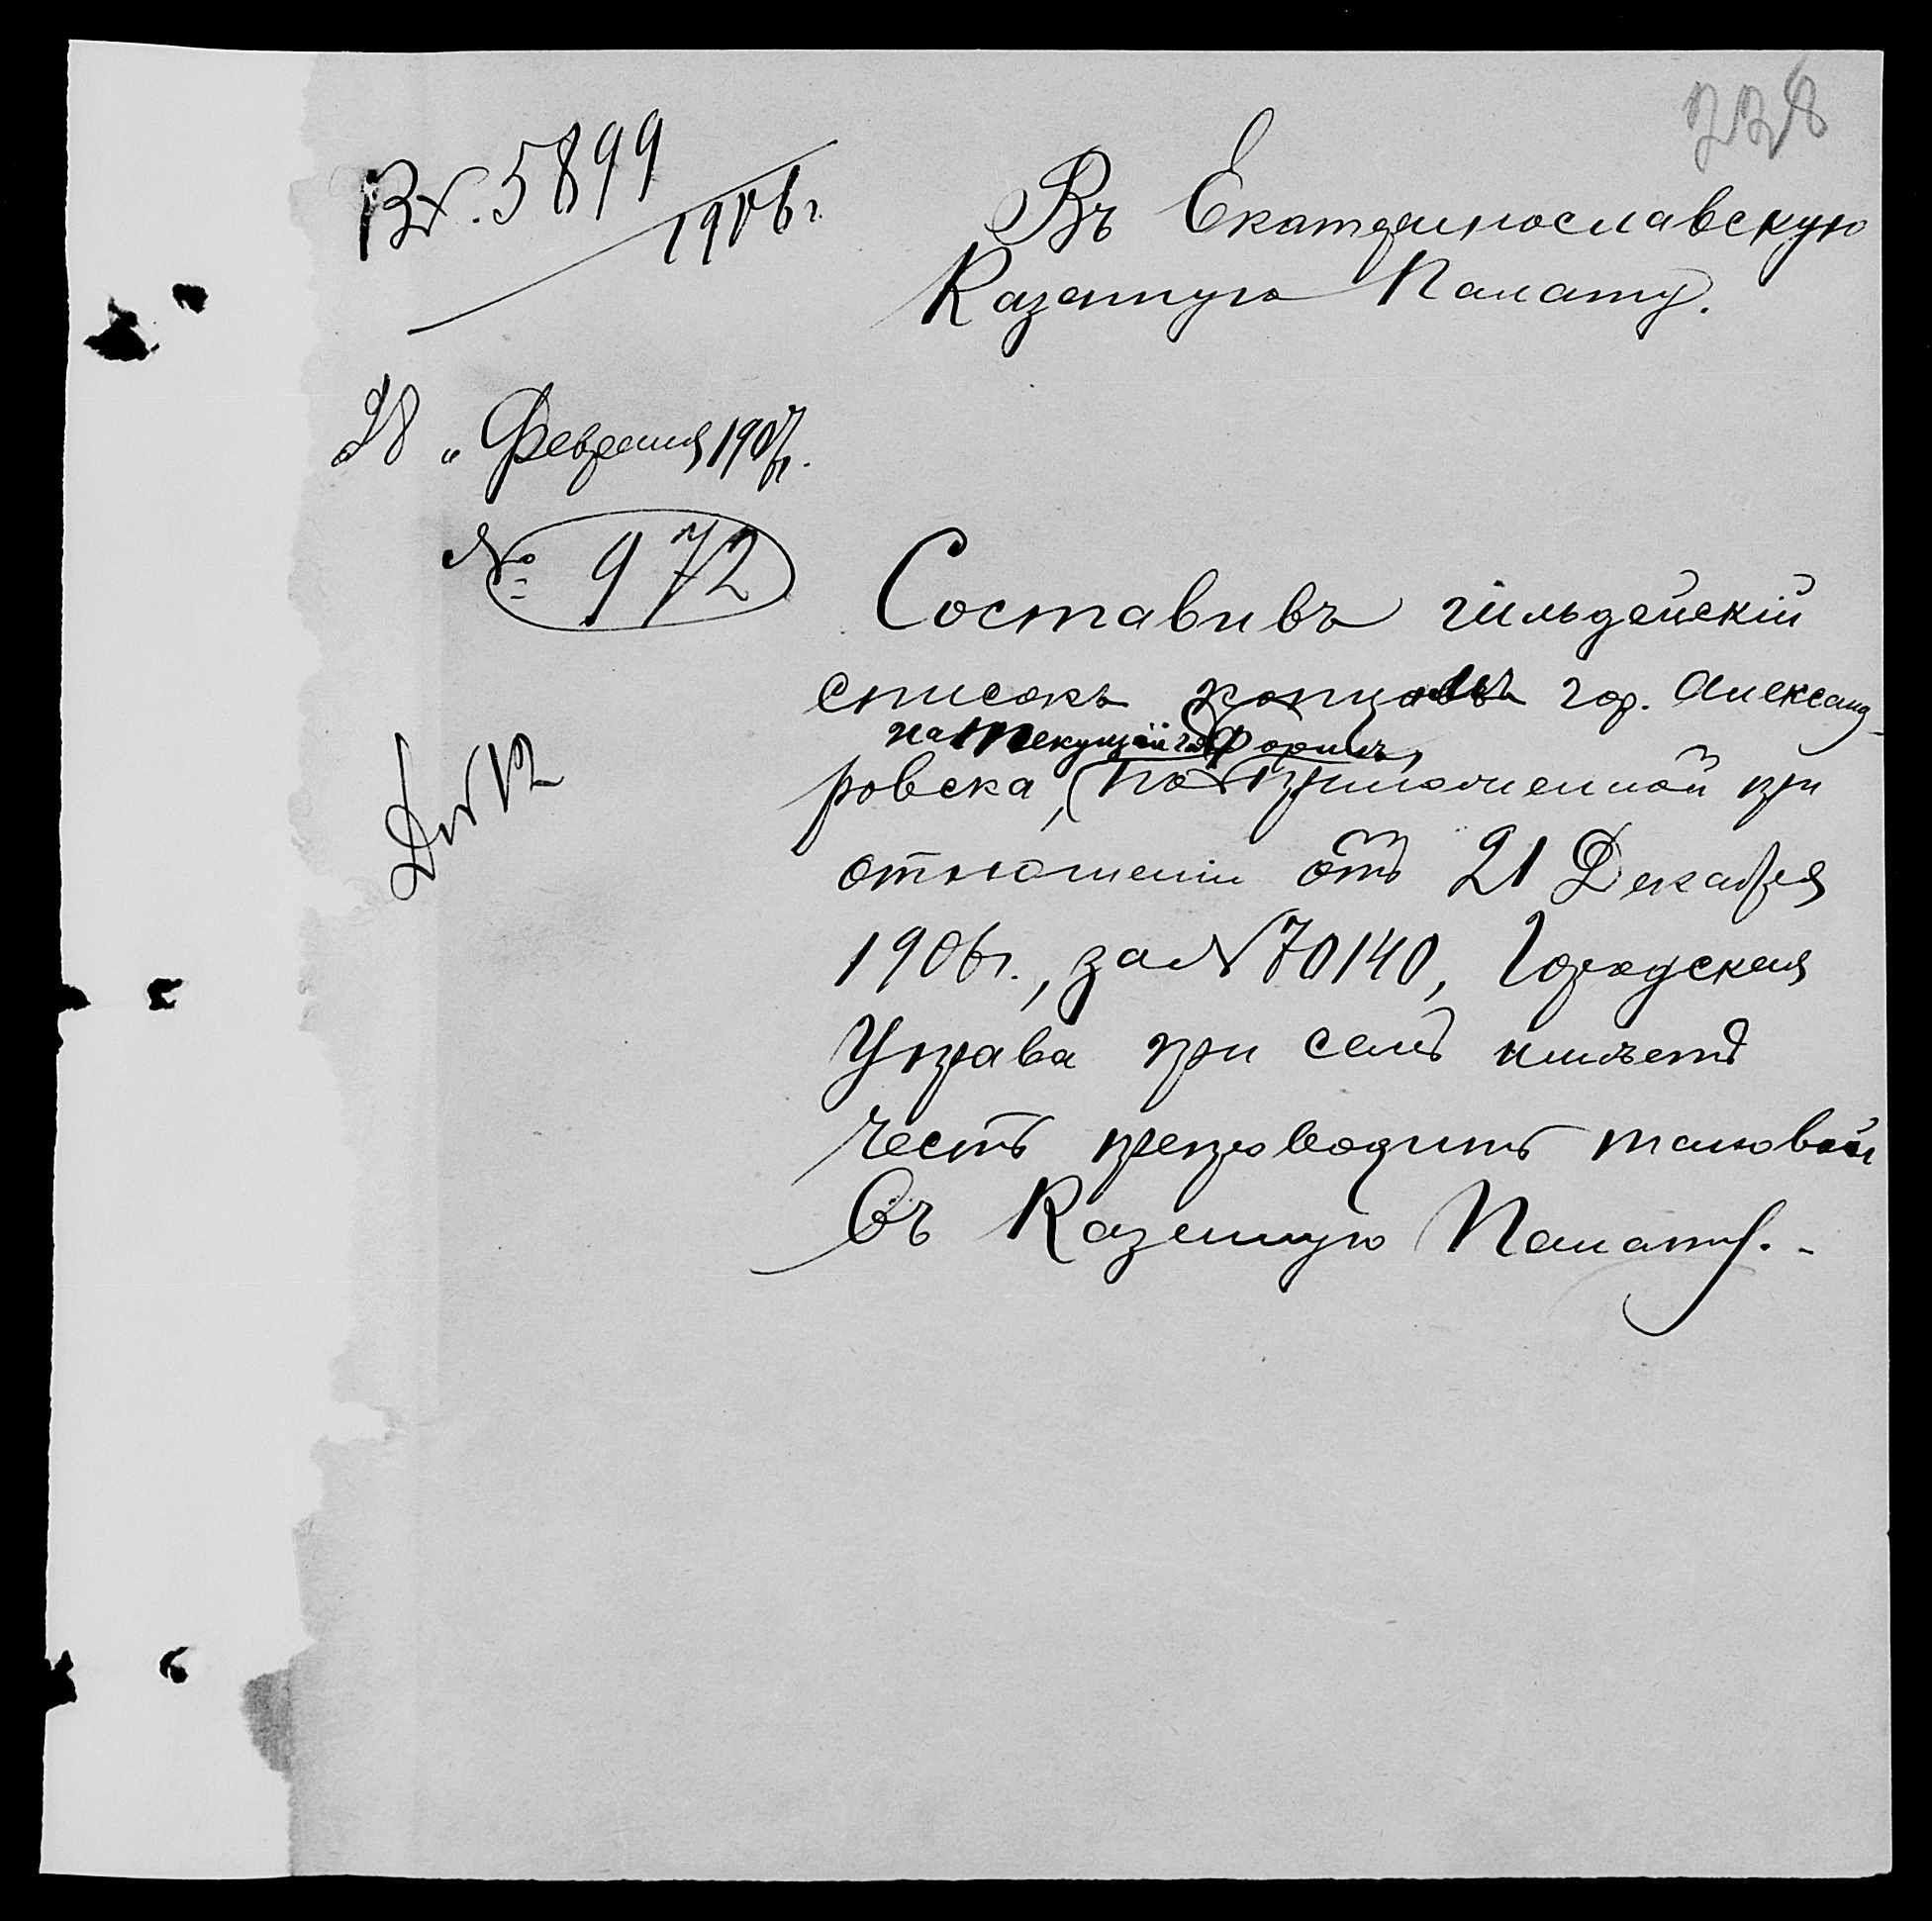 228
Вх. 5899
1906 г.
Въ Екатеринославскую
Казенную Палату.
28 „ Февраля 1907 г.
№ 972
Составивъ гильдейскій
списокъ купцовъ гор. Александ-
на текущій годъ формѣ,
ровска, по приложенной при
отношеніи отъ 21 Декабря
1906 г., за № 70140, Городская
Управа при семъ имѣетъ
честь препроводить таковой
въ Казенную Палату. -